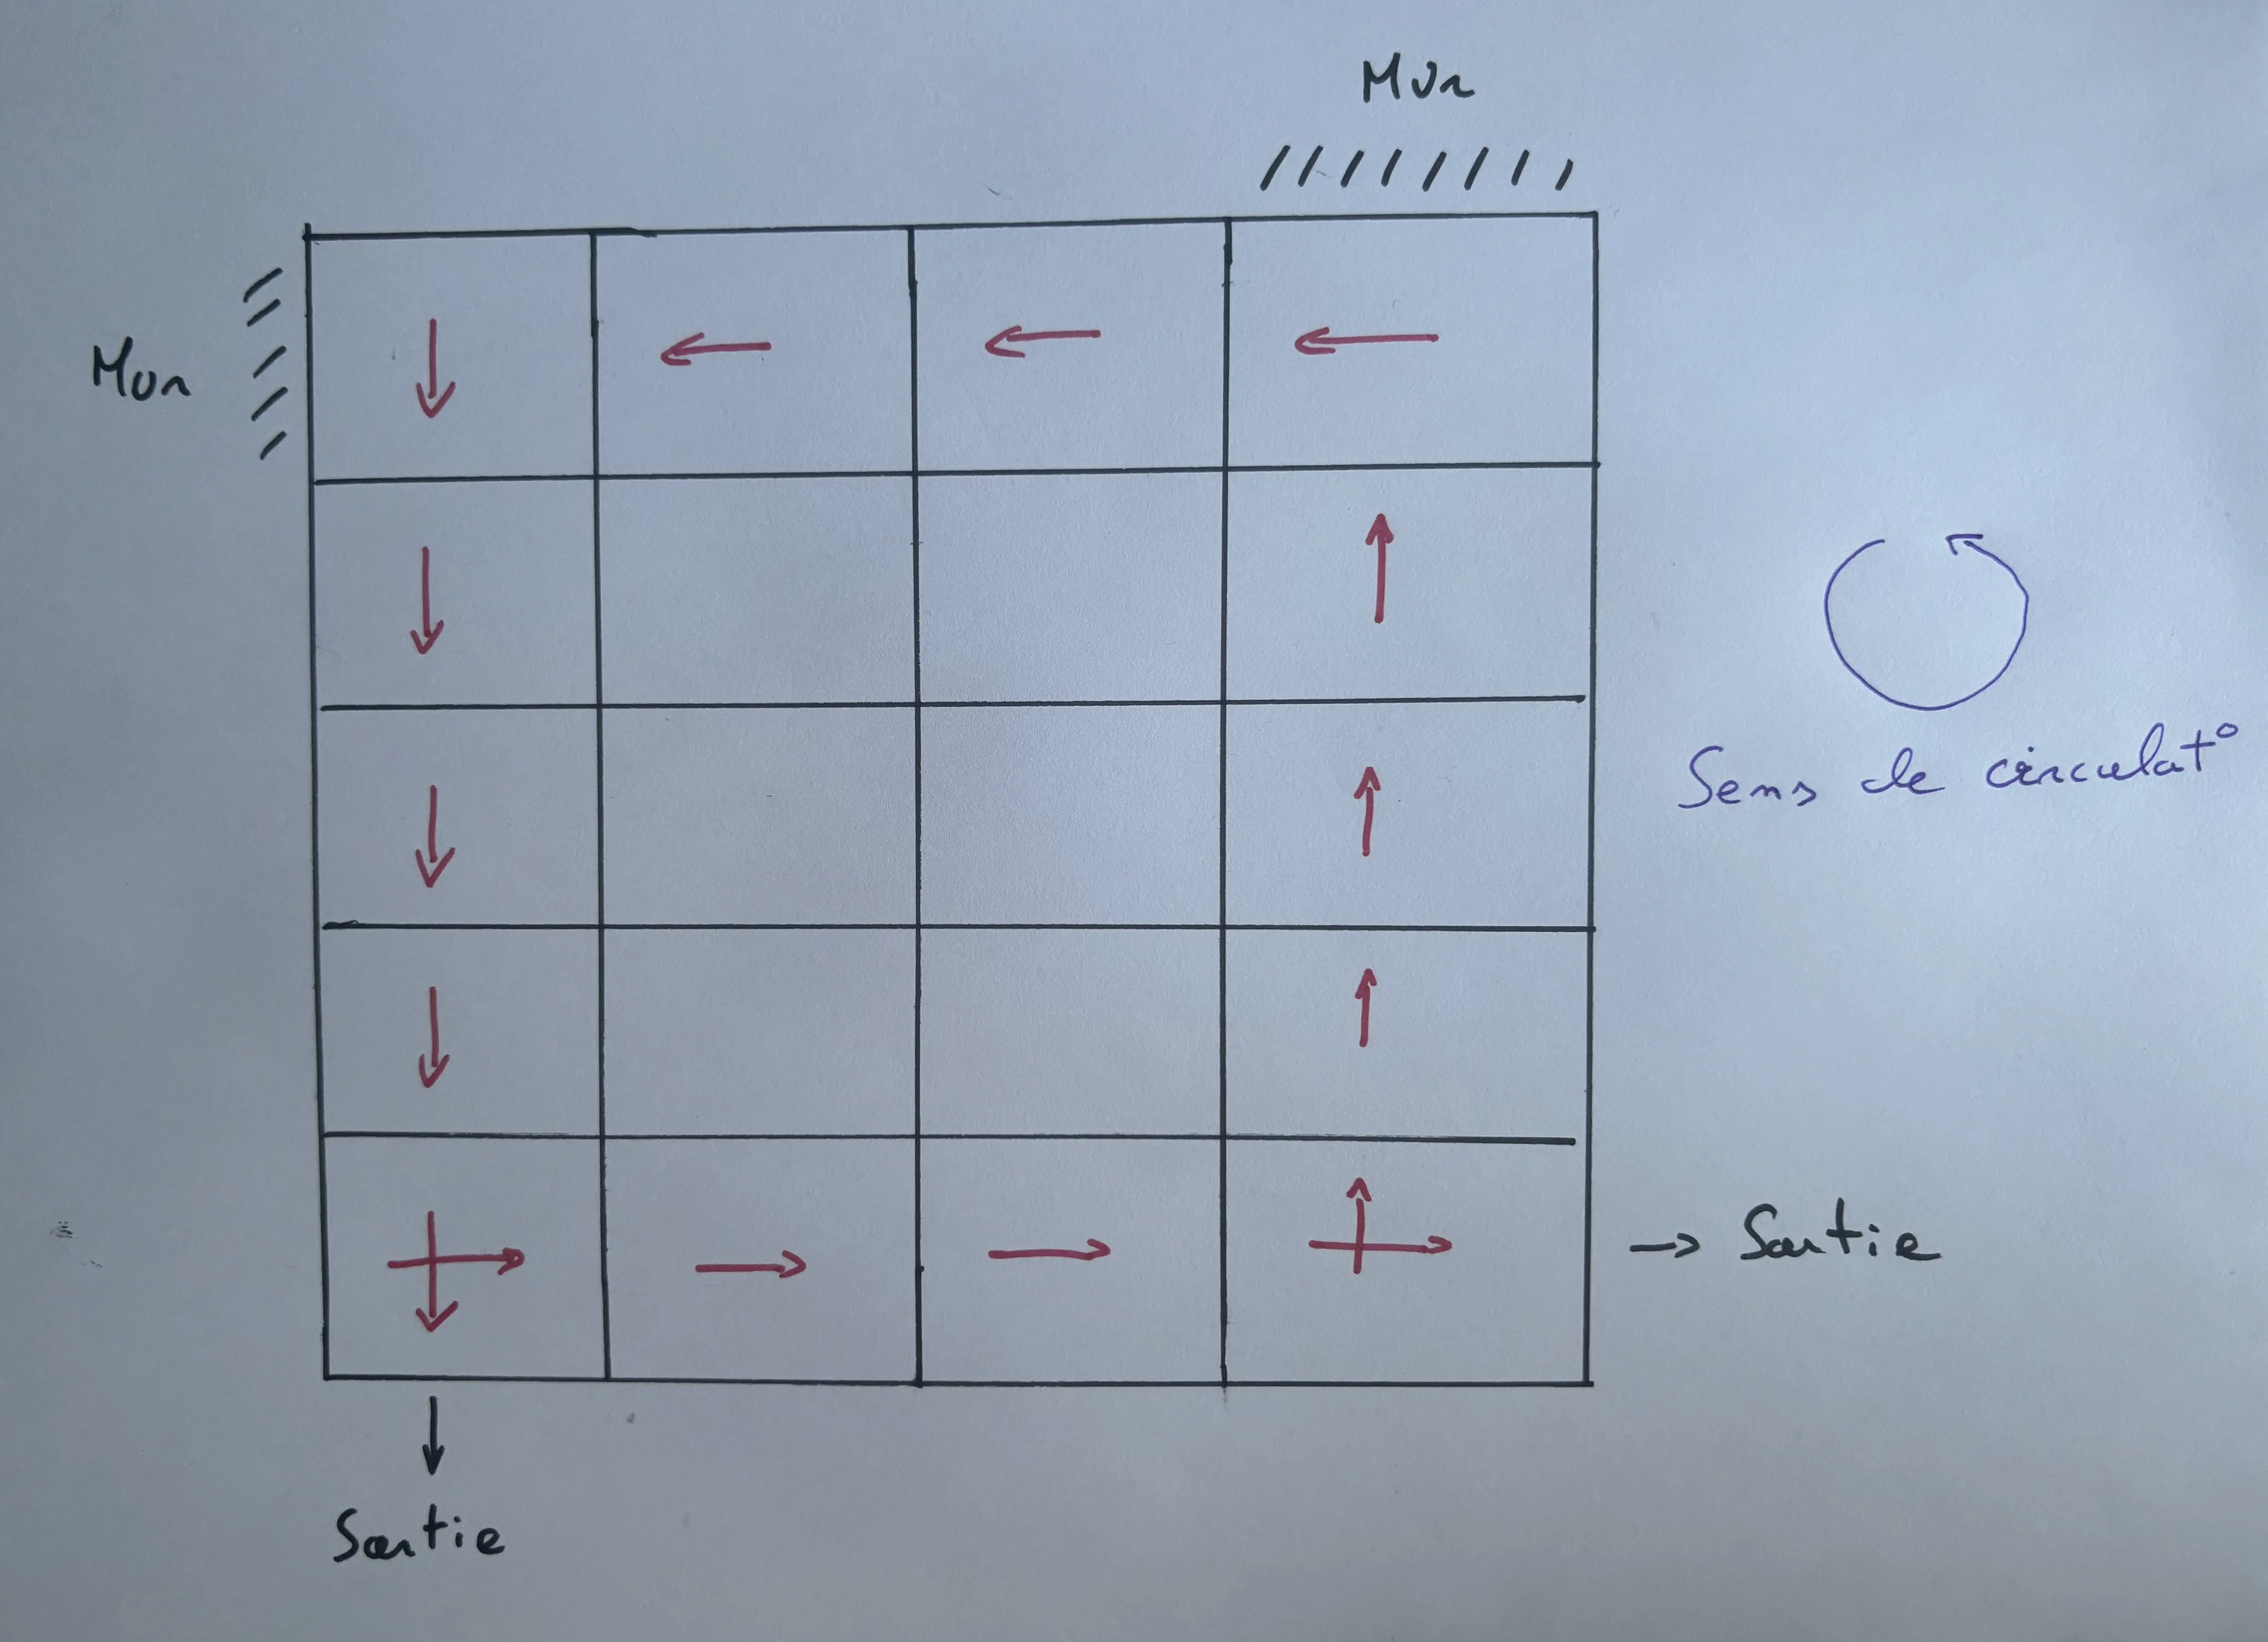 Mur
Mur
Sens de circulat°
→ Sortie
↓
Sortie